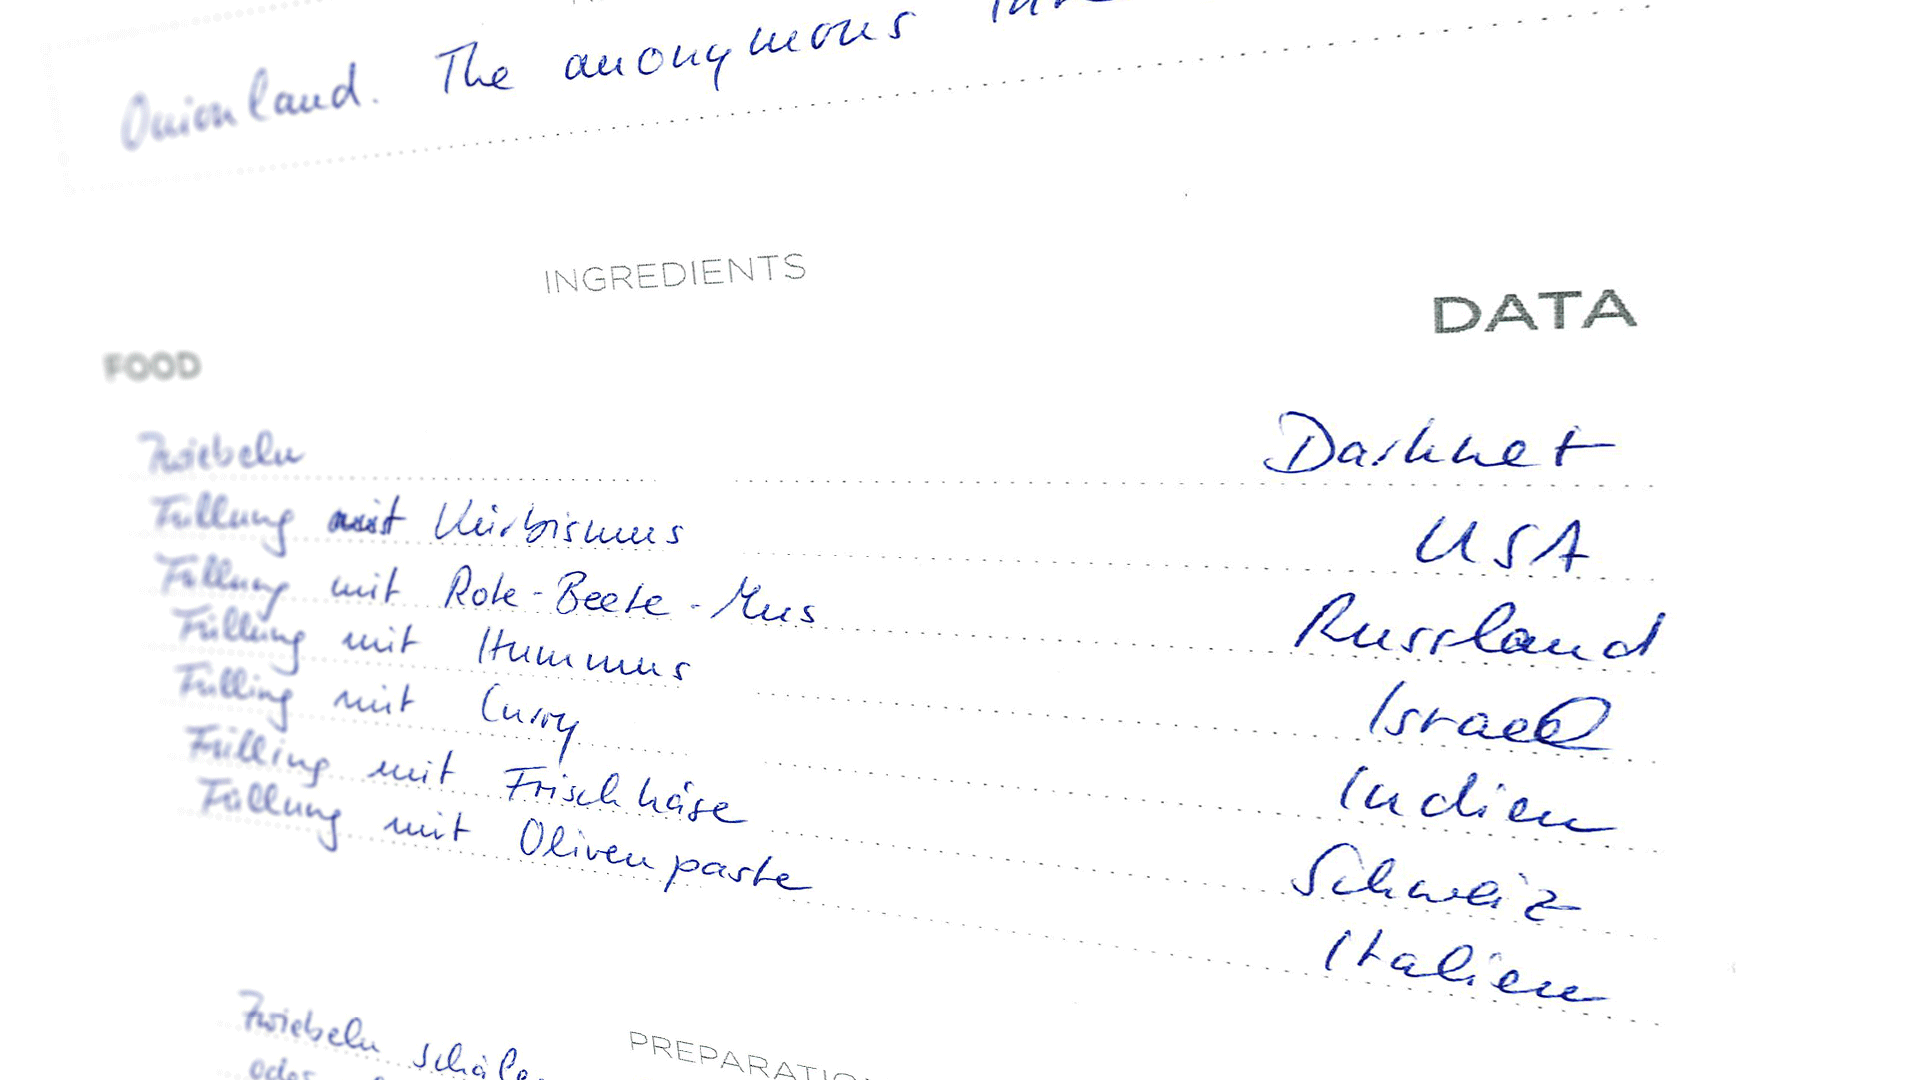 Onionland. The anonymous
INGREDIENTS
FOOD DATA
Zwiebeln Darknet
Füllung mit Kürbismus USA
Füllung mit Rote-Beete-Mus Russland
Füllung mit Hummus Israel
Fülling mit Curry Indien
Fülling mit Frischkäse Schweiz
Füllung mit Olivenpaste Italien
PREPARATIO
Zwiebeln schäle
oder